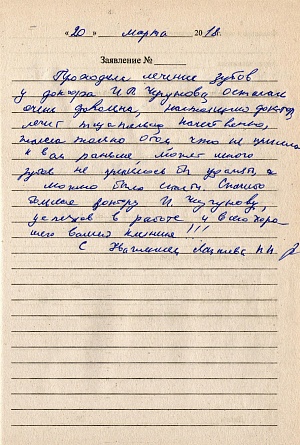 « 20 » марта 2018 г.
Заявление №
Проходила лечение зубов
у доктора И. Чугунова, осталась
очень довольна, настоящий доктор,
лечит тщательно качественно,
жалею только о том что не пришла
к вам раньше, может много
зубов не пришлось бы удалять а
можно было спасти. Спасибо
большое доктору И. Чугунову,
успехов в работе и всего хоро-
шего вашей клинике!!!
С Уважением